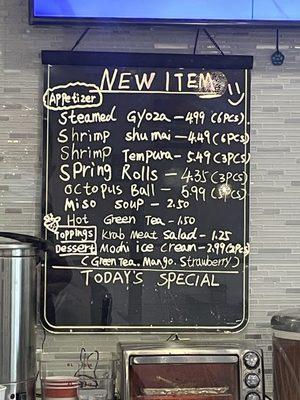 NEW ITEM
Appetizer
Steamed Gyoza - 4.99 (6PCS)
Shrimp shumai - 4.49 (6PCS)
Shrimp Tempura - 5.49 (3PCS)
SPring Rolls - 4.35 (3PCS)
Octopus Ball - 5.99 (5PCS)
Miso Soup - 2.50
Hot Green Tea - 1.50
Toppings Krab Meat Salad - 1.25
Dessert Mochi ice cream - 2.99 (2PCS)
(Green Tea. Mango. Strawberry)
TODAY'S SPECIAL